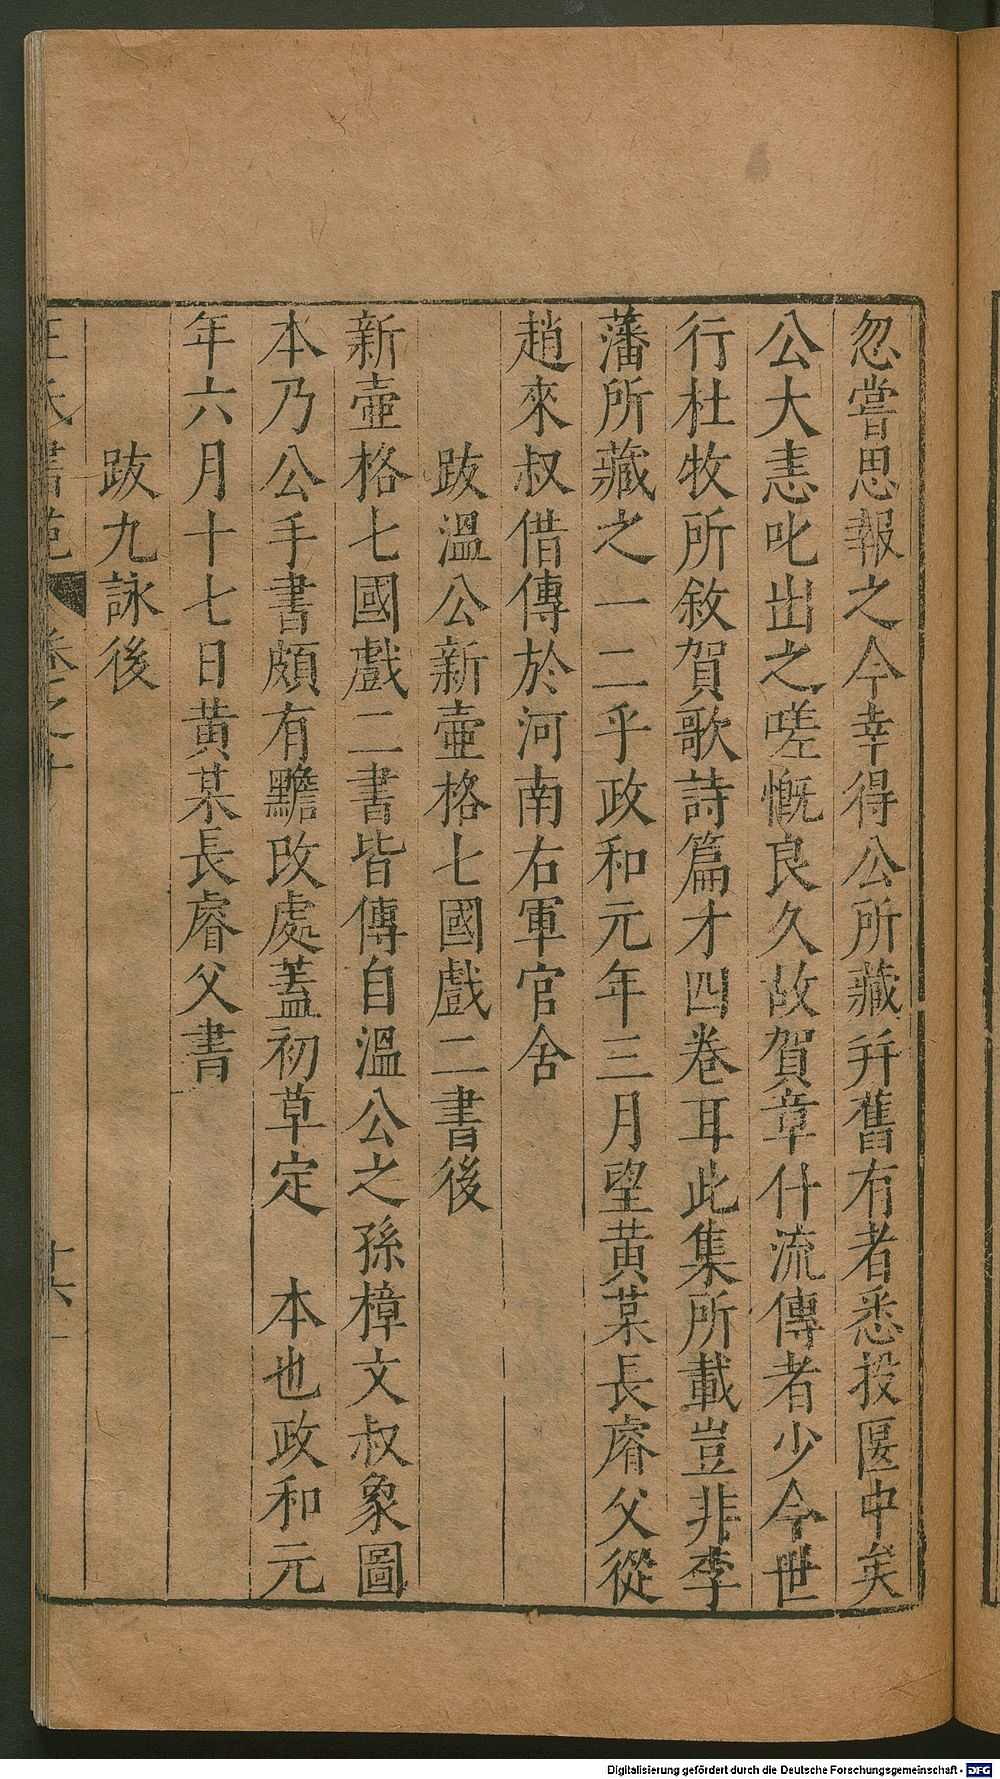 忽嘗思報之今幸得公所藏并舊有者悉投匽中矣
公大恚叱出之嗟慨良久故賀章什流傳者少今世
行杜牧所敘賀歌詩篇才四卷耳此集所載豈非李
藩所藏之一二乎政和元年三月望黃某長睿父從
趙來叔借傳於河南右軍官舍
跋溫公新壺格七國戲二書後
新壺格七國戲二書皆傳自溫公之孫樟文叔象圖
本乃公手書頗有黵改處蓋初草定　本也政和元
年六月十七日黃某長睿父書
跋九詠後
王氏書苑 卷之十
Digitalisierung gefördert durch die Deutsche Forschungsgemeinschaft - DFG